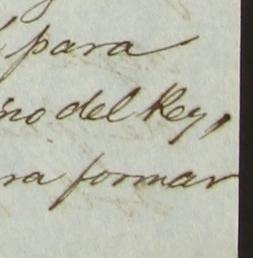 para
no del Rey,
ra formar